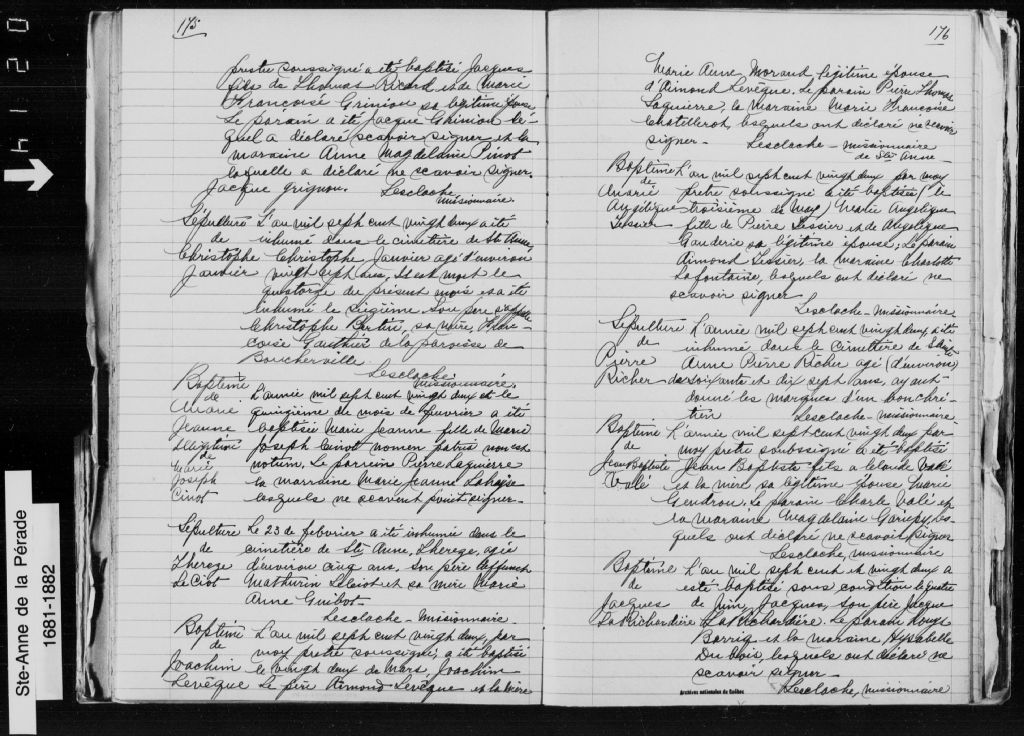 175
prestre soussigné a été baptisé Jacques
fils de Thomas Ricard et de Marie
Françoise Grinion sa légitime épouse
Le parain a été Jacque Ghinion le-
quel a déclaré scavoir signer, et la
maraine Anne Magdelaine Pinot
laquelle a déclaré ne scavoir signer.
Jacque grignon. Lesclache
missionnaire.
Sépulture L'an mil sept cent vingh deux a été
de inhumé dans le cimetière de Ste Anne
Christophe Christophe Janvier agé d'environ
Janvier vingh sept ans, il est mort le
quatorze du présent mois et a été
inhumé le seizième. Son père s'appelle
Christophe sa mère, Fran-
coise Gauthier de la paroisse de
Boucherville.
Lesclache
missionnaire.
Baptême L'année mil sept cent vingh deux et le
de quinzième du mois de fevrier a été
Marie
Jeanne baptisée Marie Jeanne fille de Marie
illégitime Joseph Cinot nomen patris non est
de notum. Le parrein Pierre Laguierre
Marie la marraine Marie Jeanne
Joseph lesquels ne scavent point signer-
Cinot
Sépulture Le 23 de febvrier a été inhumée dans le
de cimetière de Ste Anne, Therege, agée
Therege d'environ cinq ans, son père deffunct
LeCiot Mathurin et sa mère Marie
Anne Guibot-
Lesclache- Missionnaire
Baptême L'an mil sept cent vingh deux, par
de moy prêtre soussigné, a été baptisé
Joachim le vingh deux de Mars, Joachim
Levêque Le père Aimond Levêque et la mère
176
Marie Anne, Morand légitime épouse
d'Aimond Levêque. Le parain Pierre Thomas
Laguierre, la maraine Marie Francoise
Chatellerot, lesquels ont déclaré ne scavoir
signer- Lesclache- missionnaire
de Ste Anne-
Baptême L'an mil sept cent vingh deux par moy
de
Marie prêtre soussigné a été baptisée (le
Angélique troisième de May) Marie Angelique
Tessier fille de Pierre Tessier et de Angelique
sa légitime épouse; Le parain
Aimond Tessier, la maraine Charlotte
Lafontaine, lesquels ont déclaré ne
scavoir signer
Lesclache- missionnaire
Sépulture L'année mil sept cent vingh deux, a été
de inhumé dans le cimetière de Sainte
Pierre Anne Pierre Richer agé (d'environ)
Richer- de soixante et dix sept ans, ayant
donné les marques d'un bon chré-
tien Lesclache- missionnaire
Baptême L'année mil sept cent vingh deux par
de moy prêtre soussigné a été baptisé
Jean Baptiste Jean Baptiste fils à Claude Valé
Valé et la mère sa légitime épouse Marie
Gendron. Le parain Charle Valé et
la maraine Magdelaine Gariépy, les-
quels ont déclaré ne scavoir signer
Lesclache, missionnaire
Baptême L'an mil sept cent et vingh deux a
de esté baptisé sous condition le quatre
Jacques de juin, Jacques, son père Jacque
La Richardière La Richardière. Le parain Louys
et la maraine Ysabelle
Du Bois, lesquels ont déclaré ne
scavoir signer-
Lesclache, missionnaire
Archives nationales du Québec
Ste-Anne de la Pérade
1681-1882